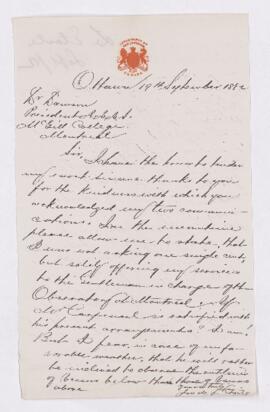 Ottawa 19th September 1882
Dr Dawson
President A.A.A.S.
McGill College
Montreal
Sir, I have the honor to tender
my most sincere thanks to you
for the kindness with which you
acknowledged my two communi-
cations. In the meantime
please allow me to state, that
I was not asking one single cent,
but solely offering my services
to the Gentleman in charge of the
Observatory at Montreal. If
Mr is satisfied with
his present arrangements? I am!
But I fear, in case of unfa-
vorable weather, that he will rather
be inclined to observe the entrance
of Venus below than those of Venus
above